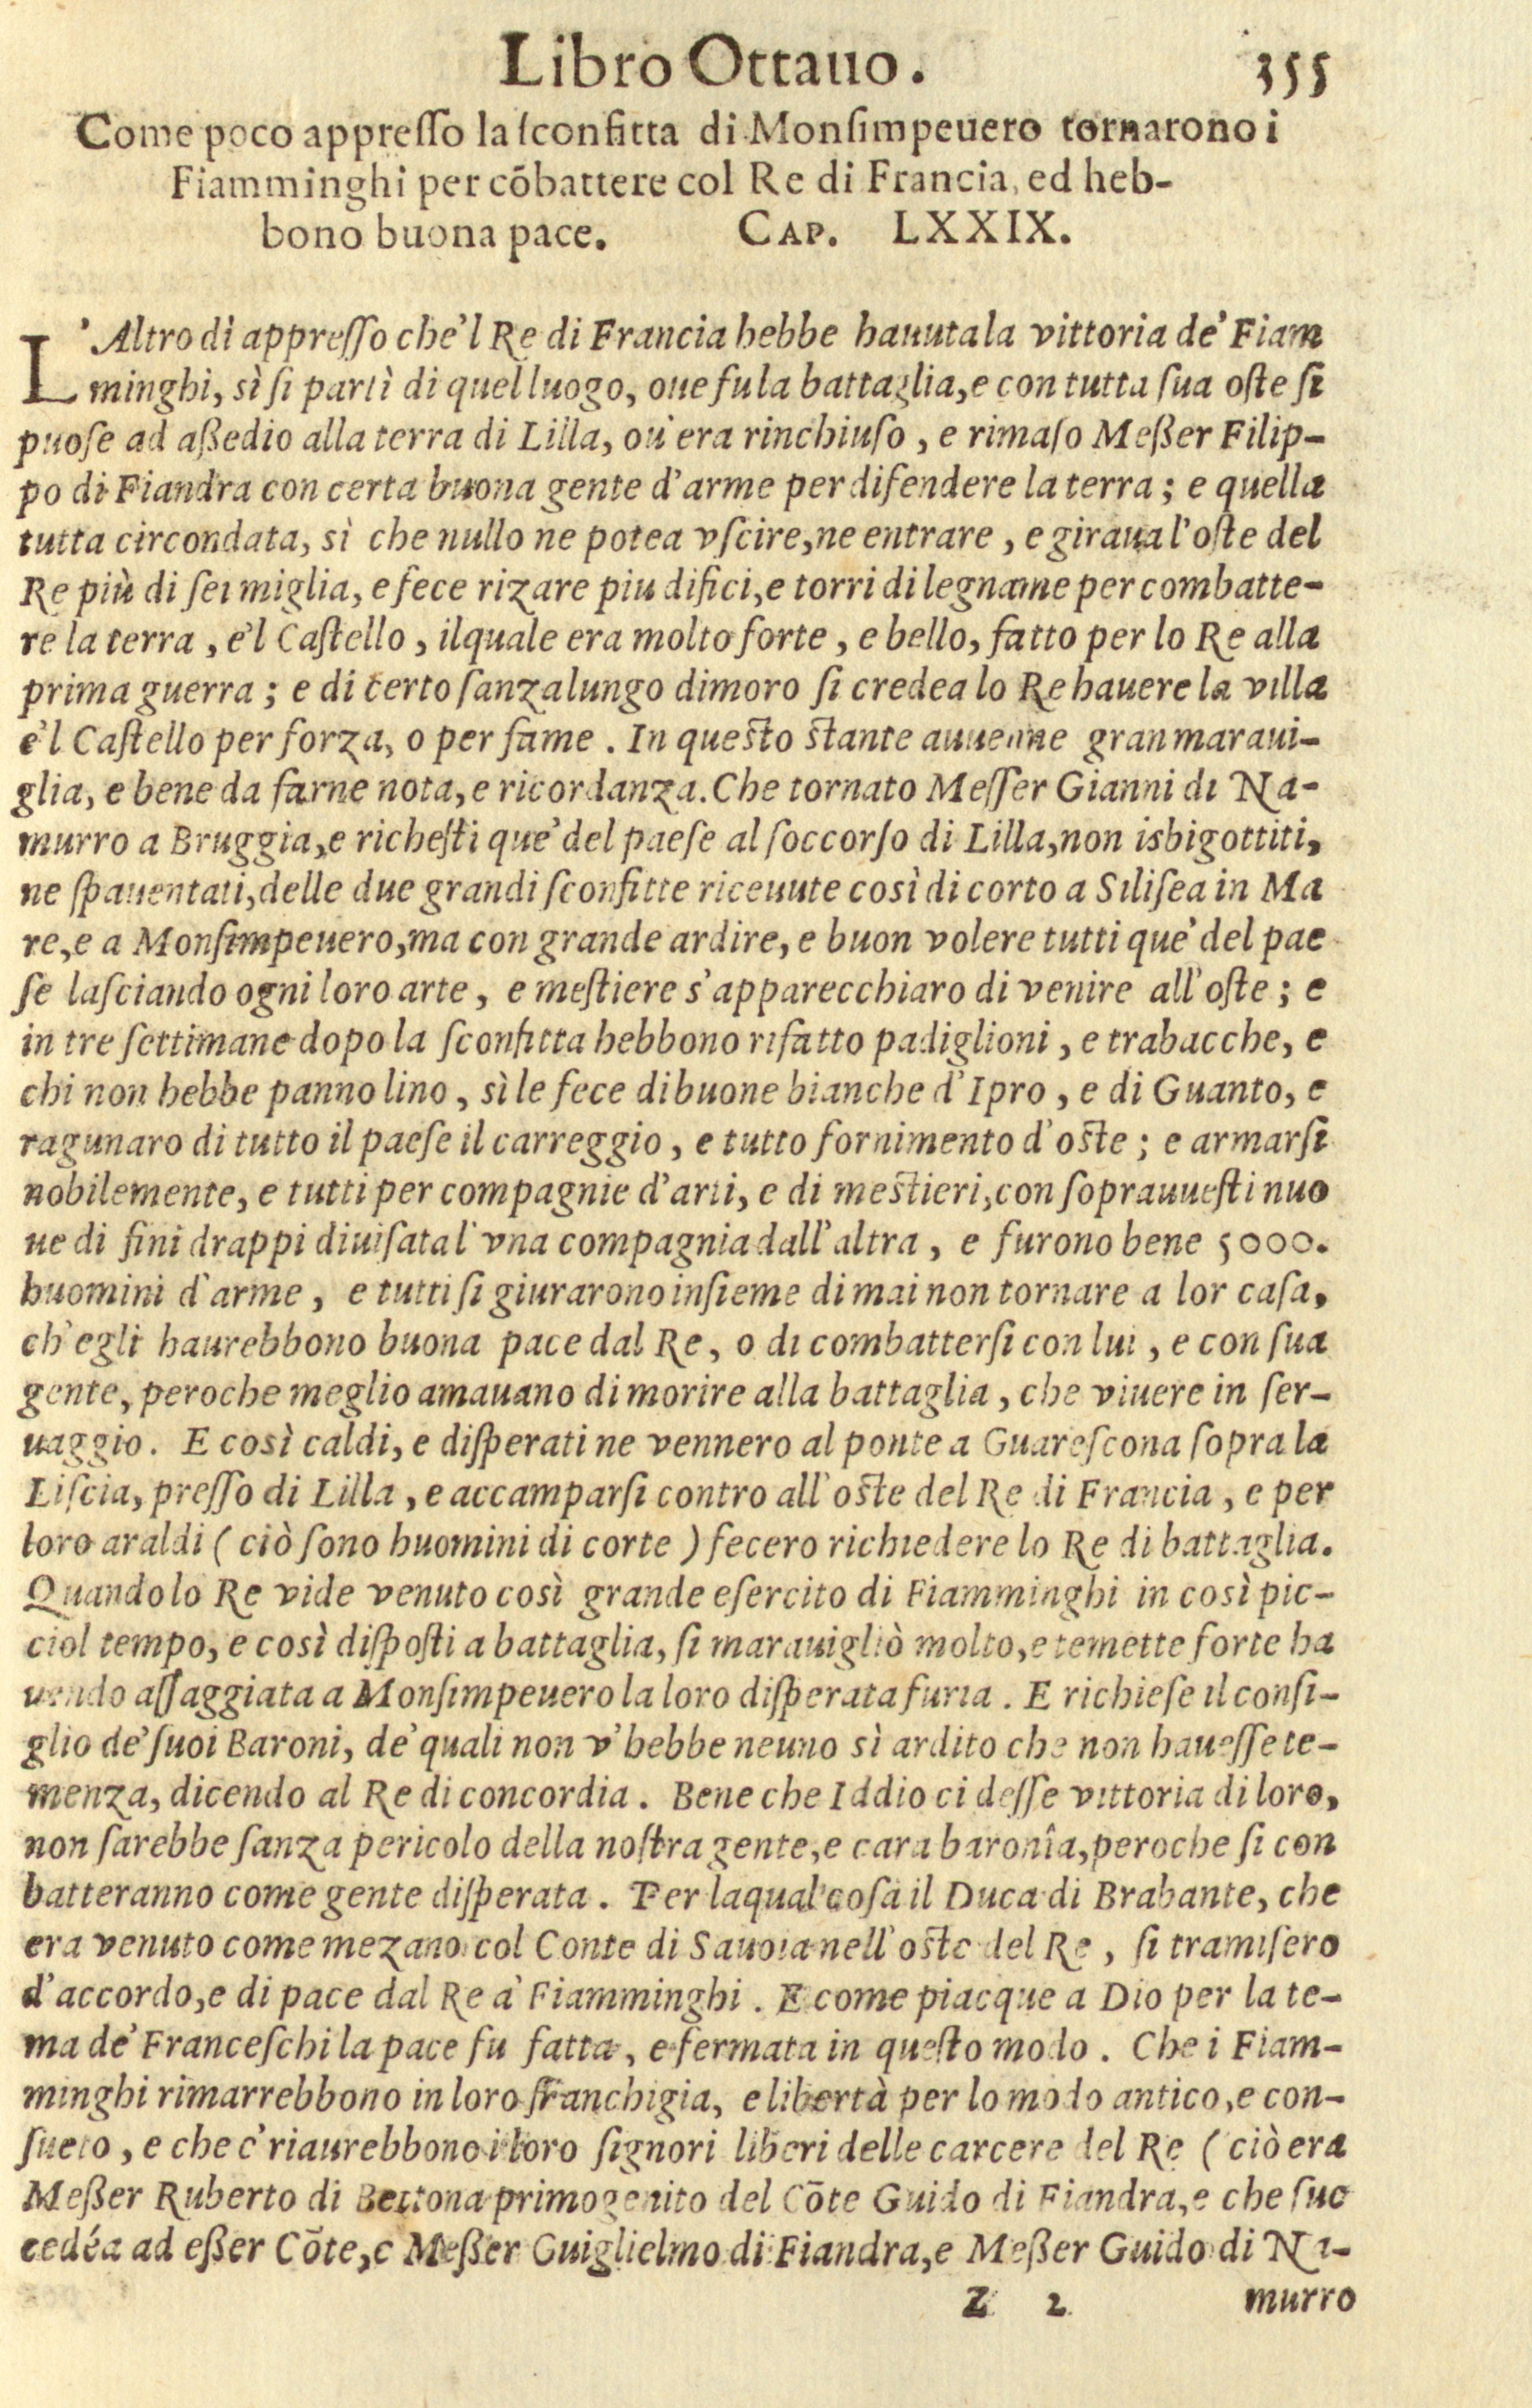 Libro Ottauo. 355
Come poco appreſſo la ſconfitta di Monſimpeuero tornarono i
Fiamminghi per cõbattere col Re di Francia, ed heb-
bono buona pace. CAP. LXXIX.
L'Altro dì appreſſo che'l Re di Francia hebbe hauuta la vittoria de' Fiam
minghi, sì ſi partì di quel luogo, oue fu la battaglia, e con tutta ſua oſte ſi
puoſe ad aßedio alla terra di Lilla, ou' era rinchiuſo, e rimaſo Meßer Filip-
po di Fiandra con certa buona gente d'arme per difendere la terra; e quella
tutta circondata, sì che nullo ne potea vſcire, ne entrare, e giraua l'oſte del
Re più di ſei miglia, e fece rizare piu difici, e torri di legname per combatte-
re la terra, e'l Caſtello, ilquale era molto forte, e bello, fatto per lo Re alla
prima guerra; e di certo ſanza lungo dimoro ſi credea lo Re hauere la villa
e'l Caſtello per forza, o per fame. In queſto ſtante auuenne gran maraui-
glia, e bene da farne nota, e ricordanza. Che tornato Meſſer Gianni di Na-
murro a Bruggia, e richeſti que' del paeſe al ſoccorſo di Lilla, non isbigottiti,
ne ſpauentati, delle due grandi ſconfitte riceuute così di corto a Siliſea in Ma
re, e a Monſimpeuero, ma con grande ardire, e buon volere tutti que' del pae
ſe laſciando ogni loro arte, e meſtiere s'apparecchiaro di venire all'oſte; e
in tre ſettimane dopo la ſconfitta hebbono rifatto padiglioni, e trabacche, e
chi non hebbe panno lino, sì le fece di buone bianche d'Ipro, e di Guanto, e
ragunaro di tutto il paeſe il carreggio, e tutto fornimento d'oſte; e armarſi
nobilemente, e tutti per compagnie d'arti, e di meſtieri, con ſoprauueſti nuo
ue di fini drappi diuiſata l'vna compagnia dall'altra, e furono bene 5000.
huomini d'arme, e tutti ſi giurarono inſieme di mai non tornare a lor caſa,
ch'egli haurebbono buona pace dal Re, o di combatterſi con lui, e con ſua
gente, peroche meglio amauano di morire alla battaglia, che viuere in ſer-
uaggio. E così caldi, e diſperati ne vennero al ponte a Guareſcona ſopra la
Liſcia, preſſo di Lilla, e accamparſi contro all'oſte del Re di Francia, e per
loro araldi (ciò ſono huomini di corte) fecero richiedere lo Re di battaglia.
Quando lo Re vide venuto così grande eſercito di Fiamminghi in così pic-
ciol tempo, e così diſpoſti a battaglia, ſi marauigliò molto, e temette forte ha
uendo aſſaggiata a Monſimpeuero la loro diſperata furia. E richieſe il conſi-
glio de' ſuoi Baroni, de' quali non v'hebbe neuno sì ardito che non haueſſe te-
menza, dicendo al Re di concordia. Bene che Iddio ci deſſe vittoria di loro,
non ſarebbe ſanza pericolo della noſtra gente, e cara baronîa, peroche ſi con
batteranno come gente diſperata. Per laqual coſa il Duca di Brabante, che
era venuto come mezano col Conte di Sauoia nell'oſte del Re, ſi tramiſero
d'accordo, e di pace dal Re a' Fiamminghi. E come piacque a Dio per la te-
ma de' Franceſchi la pace fu fatta, e fermata in queſto modo. Che i Fiam-
minghi rimarrebbono in loro franchigia, e libertà per lo modo antico, e con-
ſueto, e che c'riaurebbono i loro ſignori liberi delle carcere del Re (ciò era
Meßer Ruberto di Bettona primogenito del Cõte Guido di Fiandra, e che ſuc
cedéa ad eßer Cõte, e Meßer Guiglielmo di Fiandra, e Meßer Guido di Na-
Z 2 murro